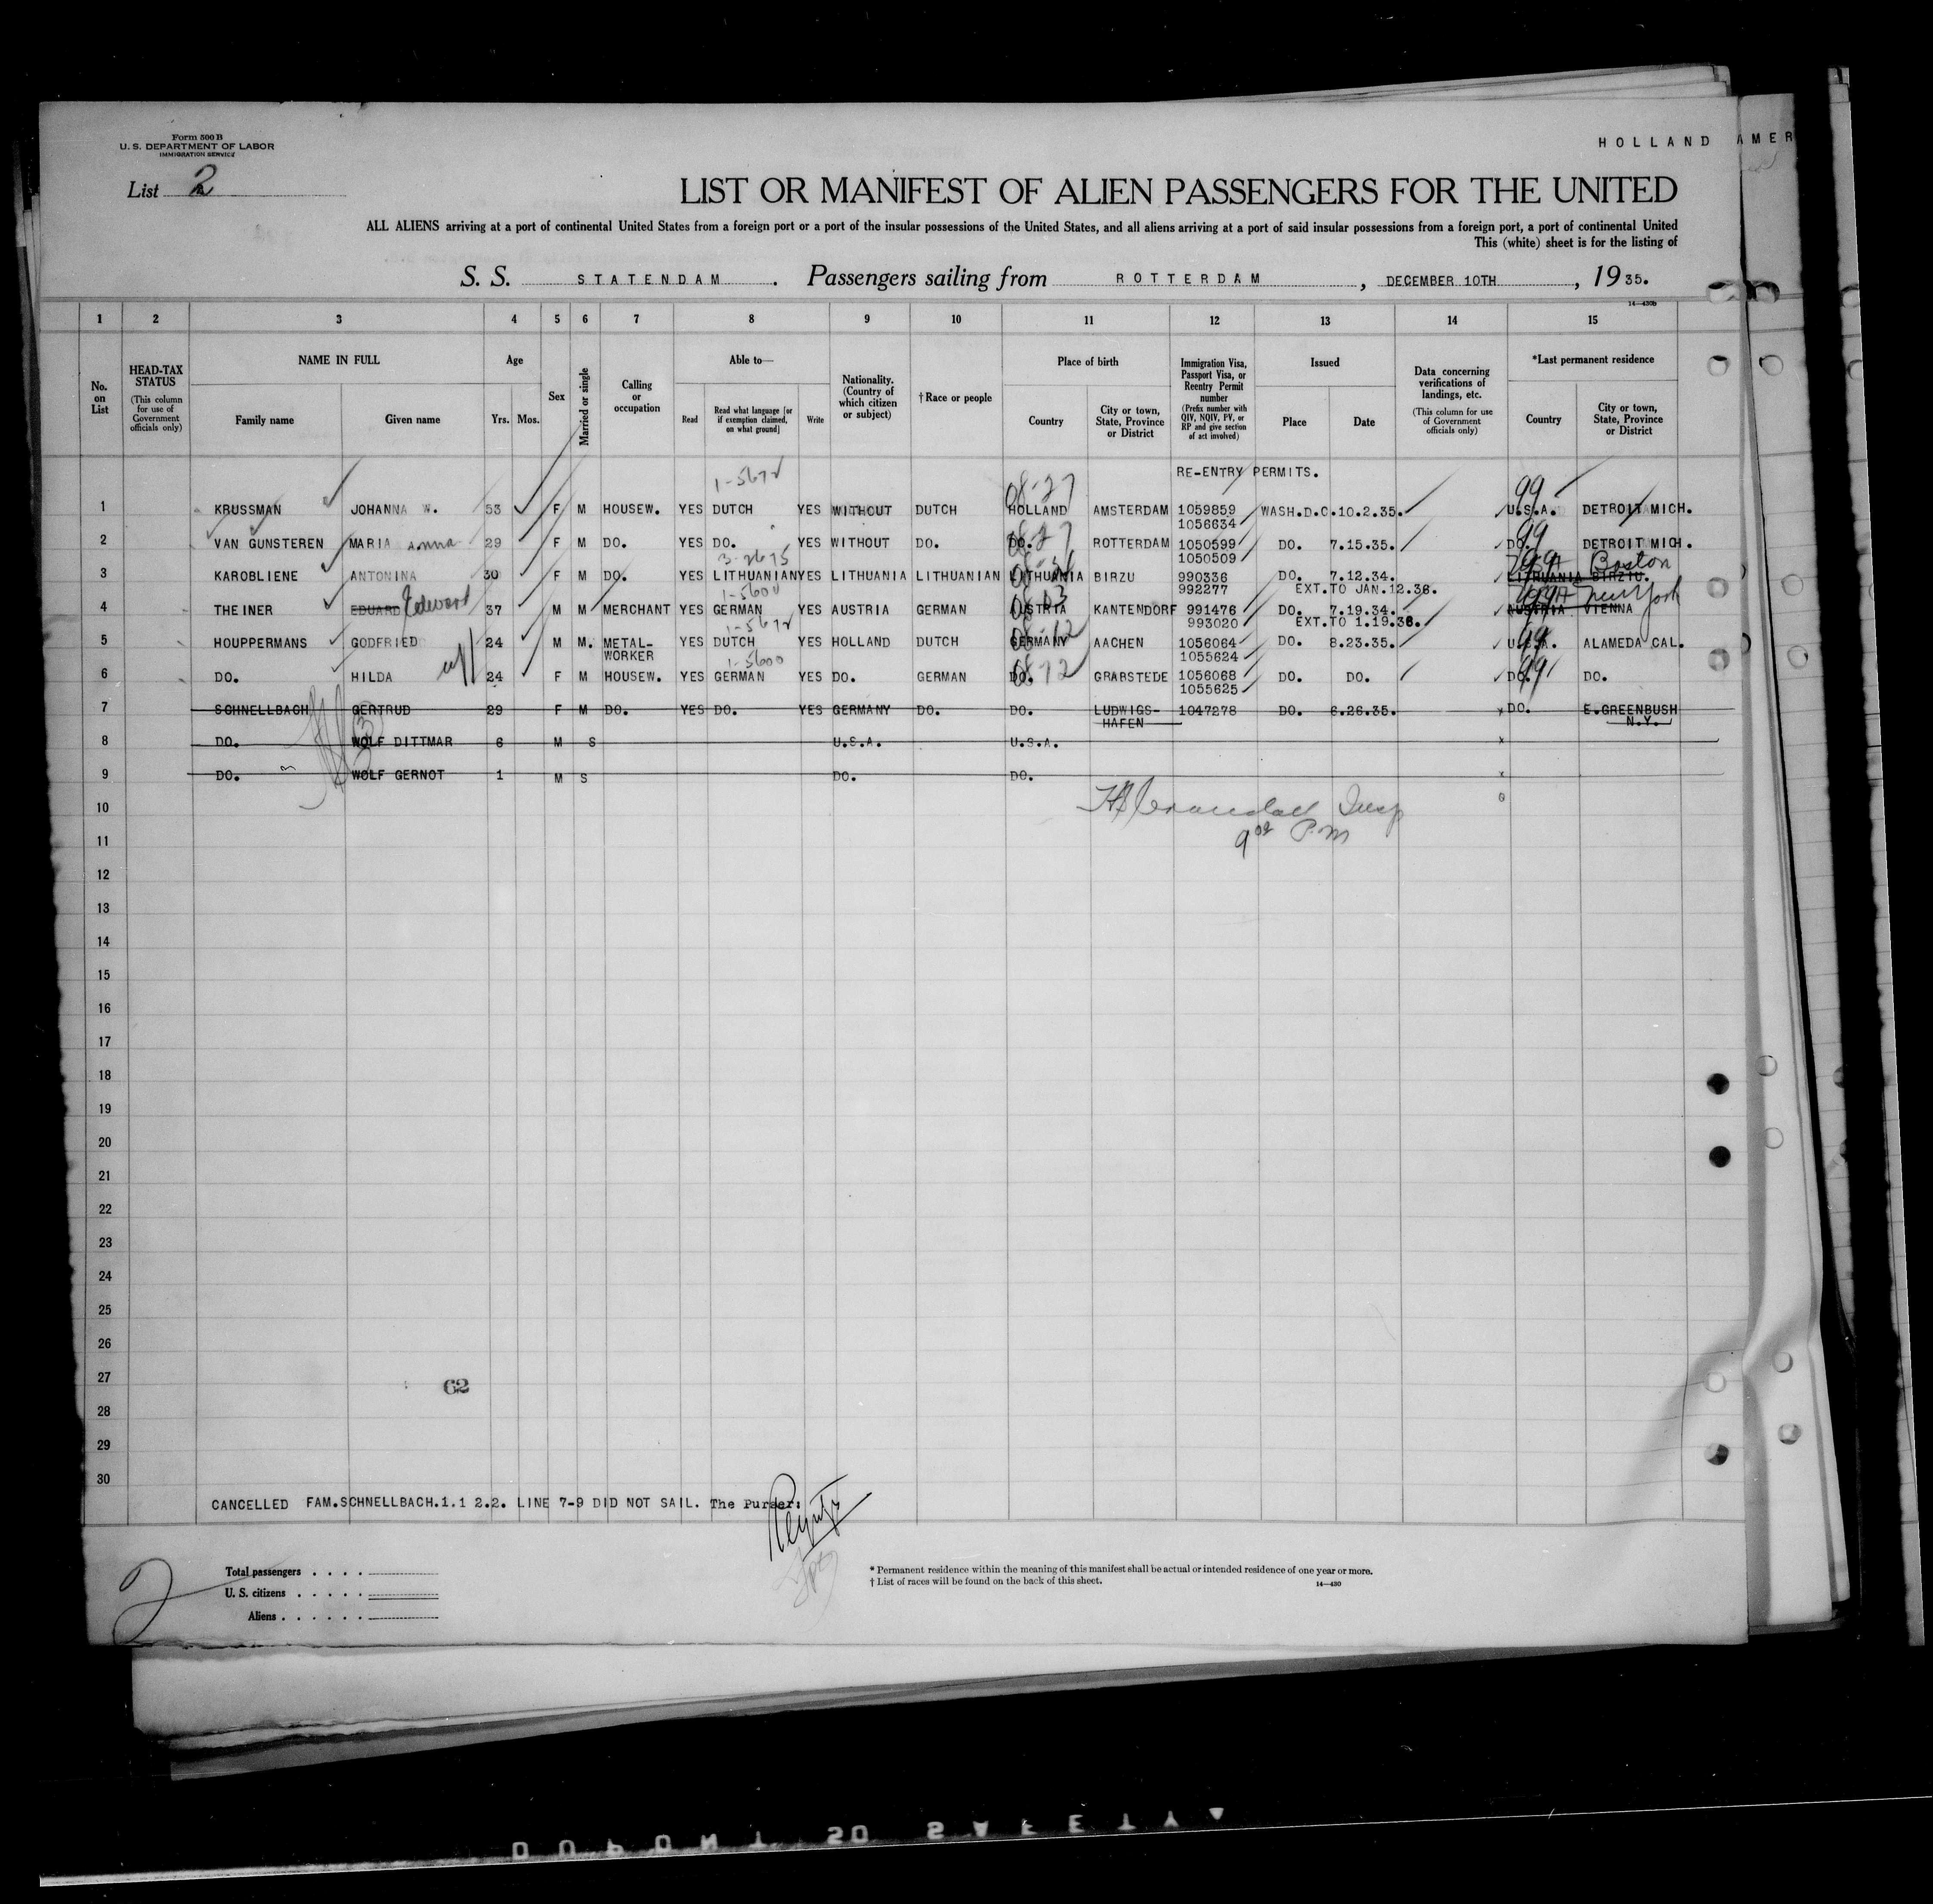 Form 500 B
U. S. DEPARTMENT OF LABOR
IMMIGRATION SERVICE
HOLLAND AMER
List 2
LIST OR MANIFEST OF ALIEN PASSENGERS FOR THE UNITED
ALL ALIENS arriving at a port of continental United States from a foreign port or a port of the insular possessions of the United States, and all aliens arriving at a port of said insular possessions from a foreign port, a port of continental United
This (white) sheet is for the listing of
S. S. STATENDAM. Passengers sailing from ROTTERDAM, DECEMBER 10TH, 1935.
14—430B
1 2 3 4 5 6 7 8 9 10 11 12 13 14 15
No. on List
HEAD-TAX STATUS (This column for use of Government officials only)
NAME IN FULL Family name Given name
Age Yrs. Mos.
Sex
Married or single
Calling or occupation
Able to— Read Read what language [or if exemption claimed, on what ground] Write
Nationality. (Country of which citizen or subject)
†Race or people
Place of birth Country City or town, State, Province or District
Immigration Visa, Passport Visa, or Reentry Permit number (Prefix number with QIV, NQIV, PV, or RP and give section of act involved)
Issued Place Date
Data concerning verifications of landings, etc. (This column for use of Government officials only)
*Last permanent residence Country City or town, State, Province or District
RE-ENTRY PERMITS.
1-5672 08-27 99
1 KRUSSMAN JOHANNA W. 53 F M HOUSEW. YES DUTCH YES WITHOUT DUTCH HOLLAND AMSTERDAM 1059859 WASH.D.C. 10.2.35. U.S.A. DETROIT MICH.
1056634
2 VAN GUNSTEREN MARIA Anna 29 F M DO. YES DO. YES WITHOUT DO. DO. ROTTERDAM 1050599 DO. 7.15.35. DO. DETROIT MICH.
3-2675 1050509 Boston
3 KAROBLIENE ANTONINA 30 F M DO. YES LITHUANIAN YES LITHUANIA LITHUANIAN LITHUANIA BIRZU 990336 DO. 7.12.34. LITHUANIA BIRZIU.
1-5600 992277 EXT.TO JAN.12.36. New York
4 THEINER EDUARD Edward 37 M M MERCHANT YES GERMAN YES AUSTRIA GERMAN AUSTRIA KANTENDORF 991476 DO. 7.19.34. AUSTRIA VIENNA
1-5672 993020 EXT.TO 1.19.36.
5 HOUPPERMANS GODFRIED 24 M M. METAL- YES DUTCH YES HOLLAND DUTCH GERMANY AACHEN 1056064 DO. 8.23.35. U.S.A. ALAMEDA CAL.
WORKER 1-5600 1055624
6 DO. HILDA 24 F M HOUSEW. YES GERMAN YES DO. GERMAN DO. GRABSTEDE 1056068 DO. DO. DO. DO.
1055625
7 SCHNELLBACH GERTRUD 29 F M DO. YES DO. YES GERMANY DO. DO. LUDWIGS- 1047278 DO. 6.26.35. DO. E.GREENBUSH
HAFEN N.Y.
8 DO. WOLF DITTMAR 6 M S U.S.A. U.S.A.
9 DO. WOLF GERNOT 1 M S DO. DO.
10 Insp
11 9 02 P.M
12
13
14
15
16
17
18
19
20
21
22
23
24
25
26
27
62
28
29
30
CANCELLED FAM.SCHNELLBACH.1.1 2.2. LINE 7-9 DID NOT SAIL. The Purser:
2
Total passengers . . . .
U. S. citizens . . . . .
Aliens . . . . . .
* Permanent residence within the meaning of this manifest shall be actual or intended residence of one year or more.
† List of races will be found on the back of this sheet.
14—430
DUPONT SO SAFETY